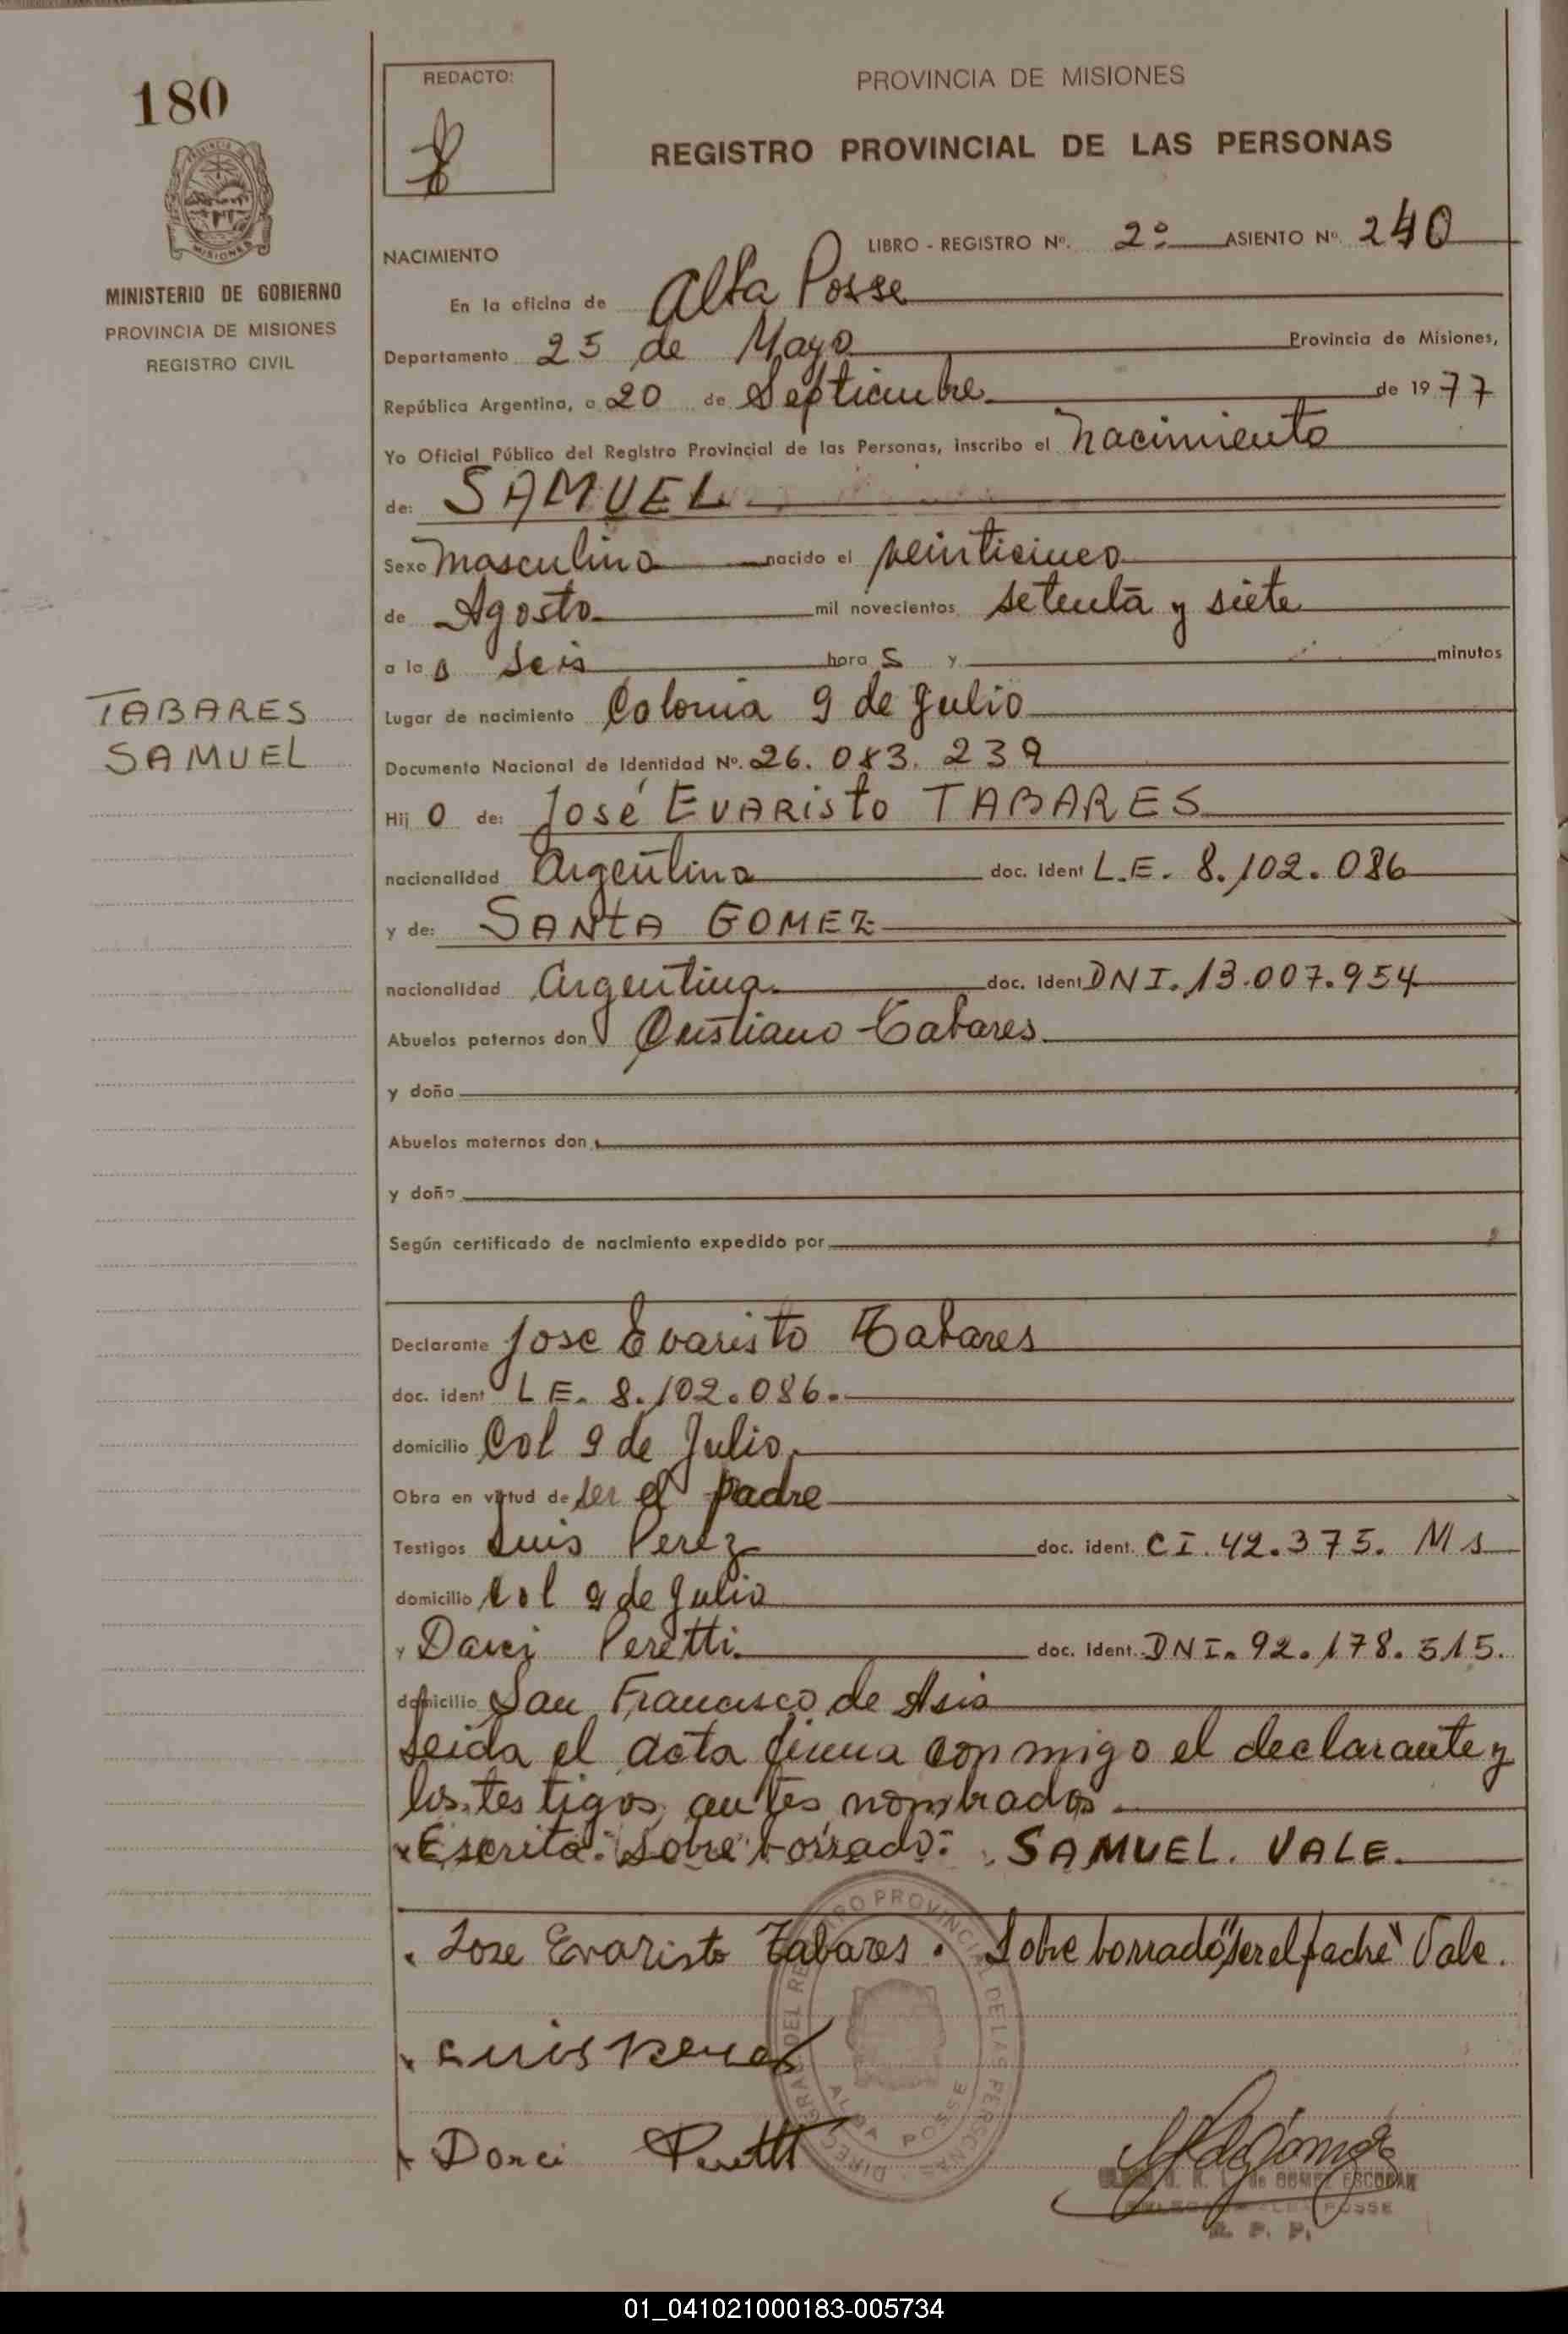 180
REDACTO:
PROVINCIA DE MISIONES
REGISTRO PROVINCIAL DE LAS PERSONAS
MISIONES
MINISTERIO DE GOBIERNO
PROVINCIA DE MISIONES
REGISTRO CIVIL
LIBRO - REGISTRO Nº. 2º ASIENTO Nº 240
NACIMIENTO
En la oficina de Alba Posse
Departamento 25 de Mayo Provincia de Misiones,
República Argentina, a 20 de Septiembre de 1977
Yo Oficial Público del Registro Provincial de las Personas, inscribo el nacimiento
de: SAMUEL
Sexo masculino nacido el veinticinco
de Agosto mil novecientos setenta y siete
a la s seis hora s y minutos
TABARES
SAMUEL
Lugar de nacimiento Colonia 9 de Julio
Documento Nacional de Identidad Nº. 26.083.239
Hij o de: José EVARISTO TABARES
nacionalidad Argentina doc. ident L.E. 8.102.086
y de: SANTA GOMEZ
nacionalidad Argentina doc. ident DNI. 13.007.954
Abuelos paternos don Cristiano Tabares
y doña
Abuelos maternos don
y doña
Según certificado de nacimiento expedido por
Declarante Jose Evaristo Tabares
doc. ident L E. 8.102.086.
domicilio Col 9 de Julio
Obra en virtud de ser el padre
Testigos Luis Perez doc. ident. CI. 42.375. Ms
domicilio Col 9 de Julio
y Darci Peretti doc. ident. DNI. 92.178.515.
domicilio San Francisco de Asis
Leida el acta firma conmigo el declarante y
los testigos antes nombrados
Escrito: sobre borrado: SAMUEL. VALE.
Jose Evaristo Tabares. Sobre borrado "ser el padre" Vale.
DIREC. GRAL. DEL REGISTRO PROVINCIAL DE LAS PERSONAS
ALBA POSSE
Luis Perez
Dorci Peretti
de GOMEZ ESCOBAR
POSSE
R. P. P.
01_041021000183-005734